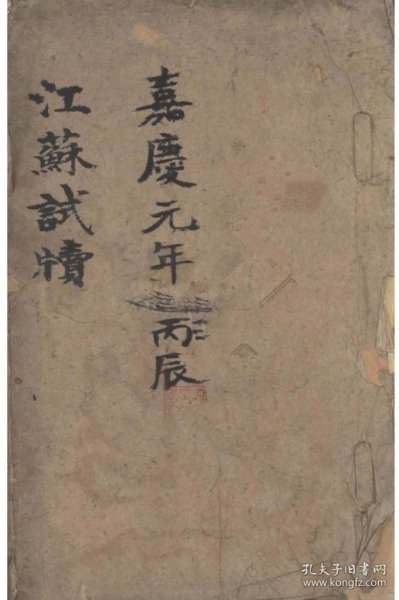 嘉慶元年 丙辰
江蘇試牘
孔夫子旧书网
www.kongfz.com